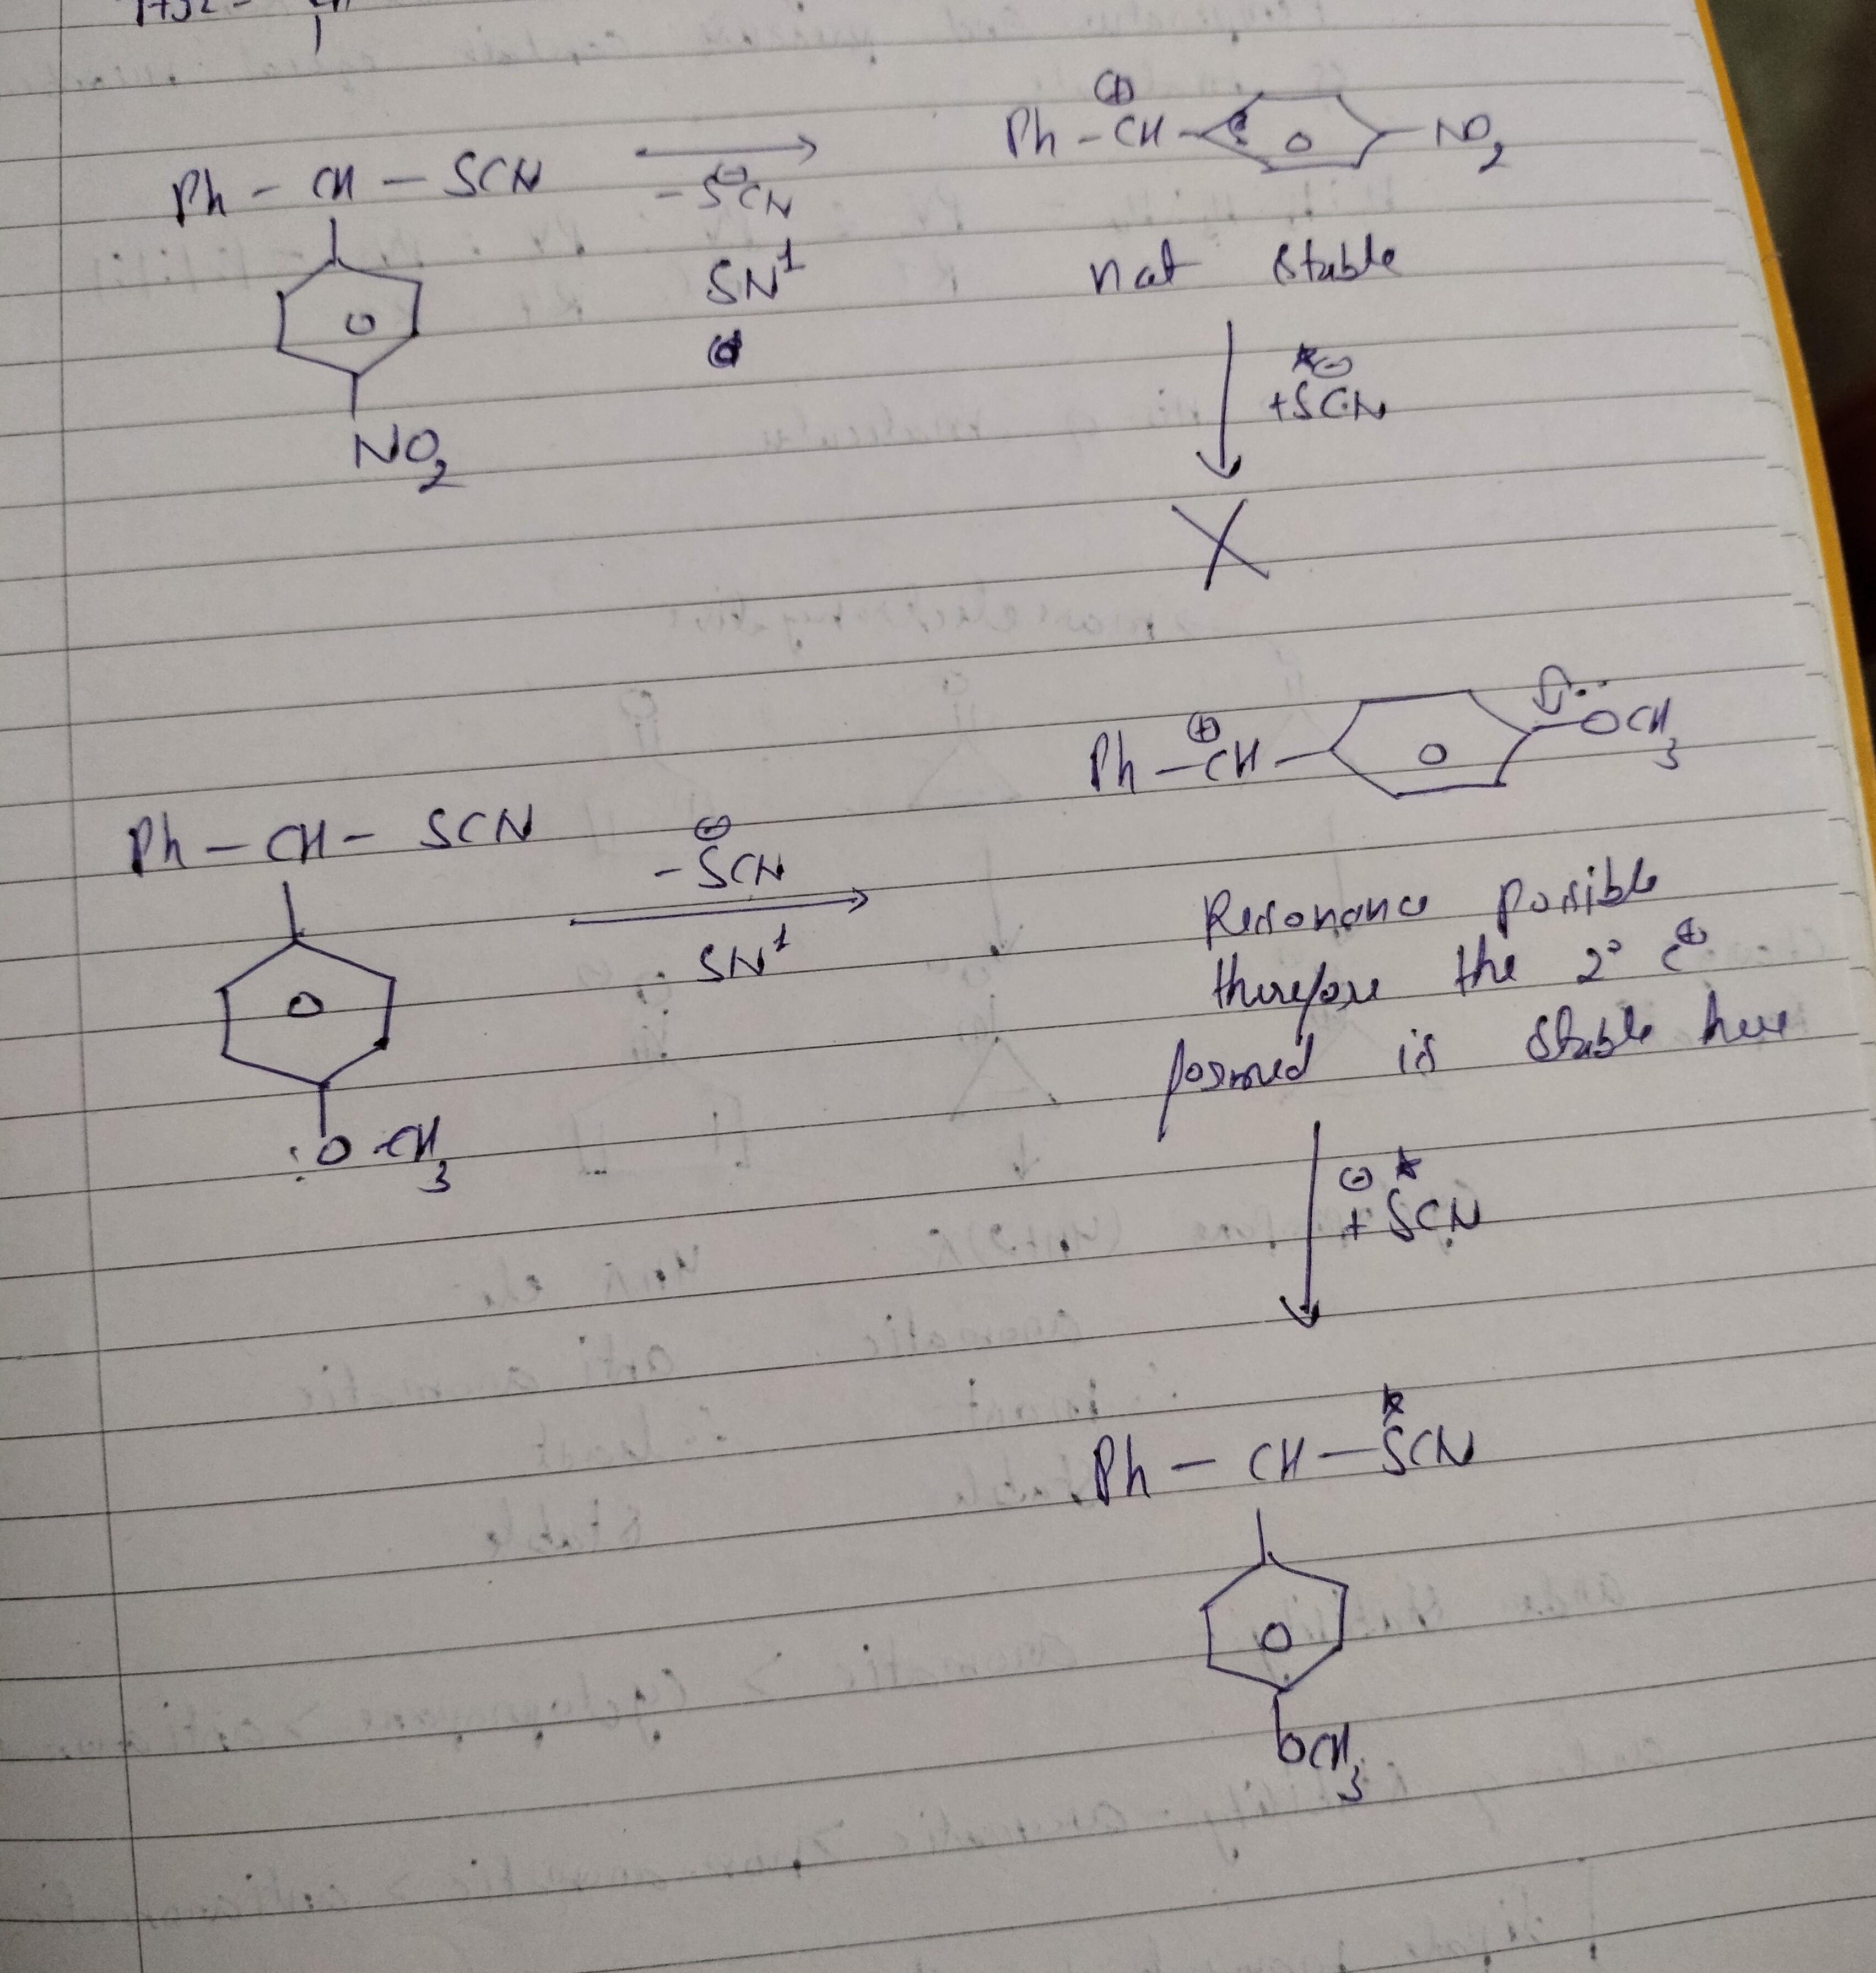 Ph - CH - SCN
NO2
-S⊖CN
SN1
Ph - CH⊕ - NO2
not stable
+S*CN⊖
X
Ph - CH - SCN
:OCH3
-S⊖CN
SN1
Ph - CH⊕ - OCH3
Resonance possible
therefore the 2° C⊕
formed is stable here
⊖ *
+ SCN
Ph - CH - S*CN
OCH3